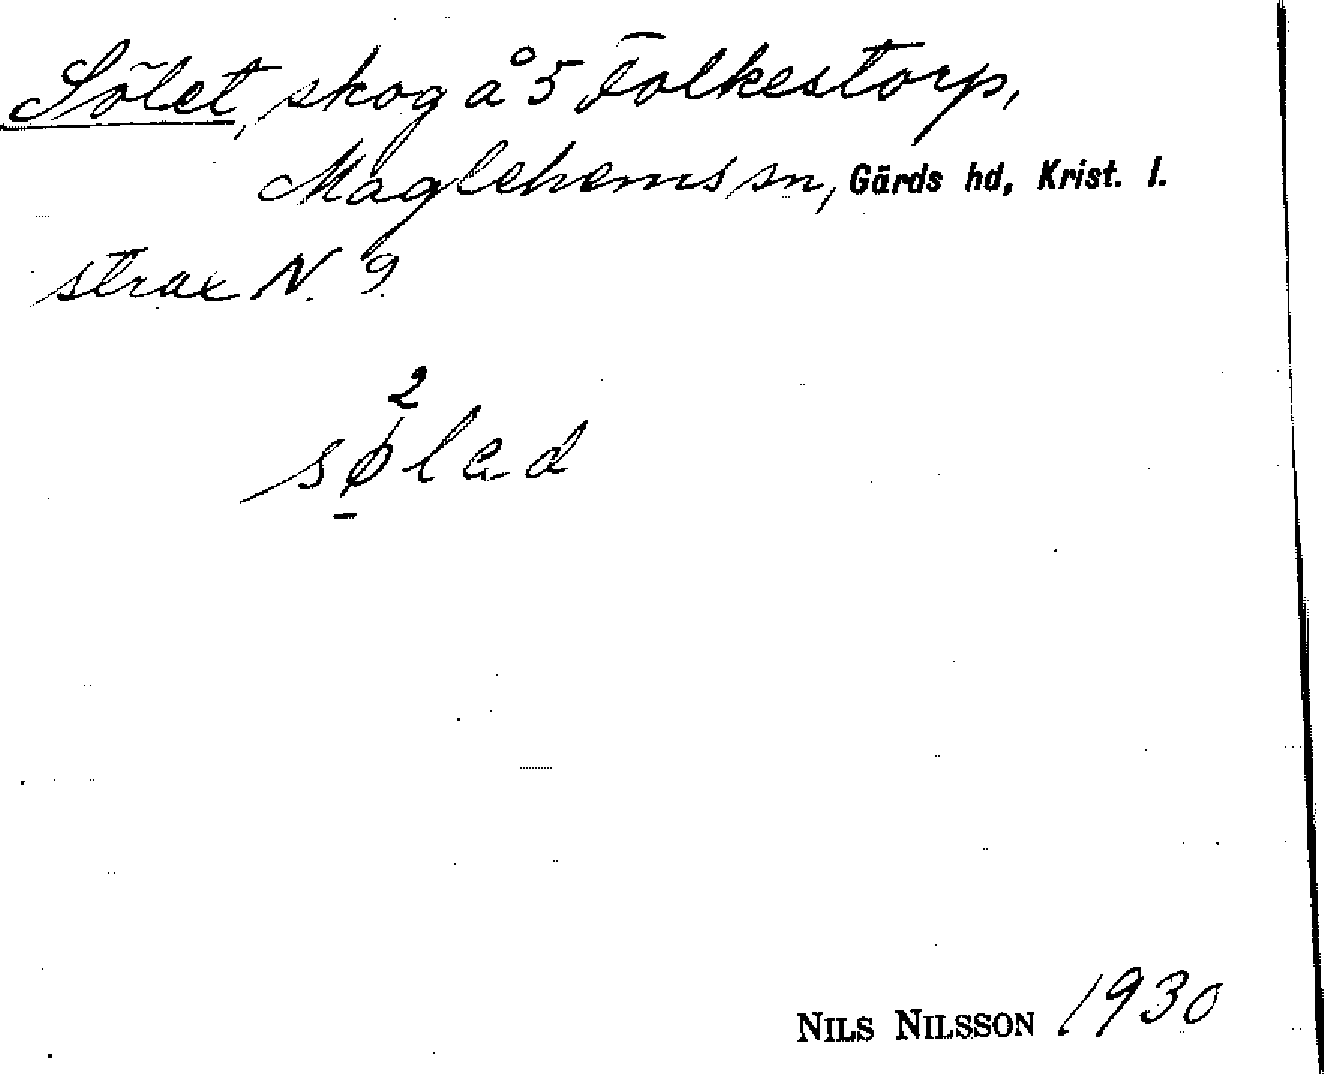 Sölet, skog å 5 Folkestorp,
Maglehems sn, Gärds hd, Krist. l.
strax N. 9.
2
søled
NILS NILSSON 1930